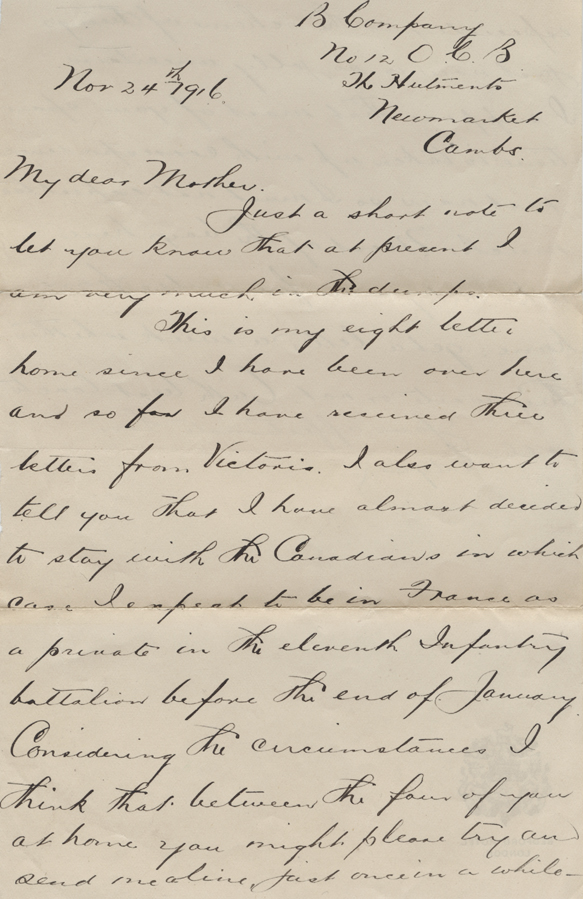 B Company
No 12 O.C.B.
Nov 24th 1916.
The Hutments
Newmarket
Cambs.
My dear Mother.
Just a short note to
let you know that at present I
am very much in the dumps.
This is my eight letter
home since I have been over here
and so far I have received three
letters from Victoria. I also want to
tell you that I have almost decided
to stay with the Canadians in which
case I expect to be in France as
a private in the eleventh Infantry
battalion before the end of January.
Considering the circumstances I
think that between the four of you
at home you might please try and
send me a line just once in a while-